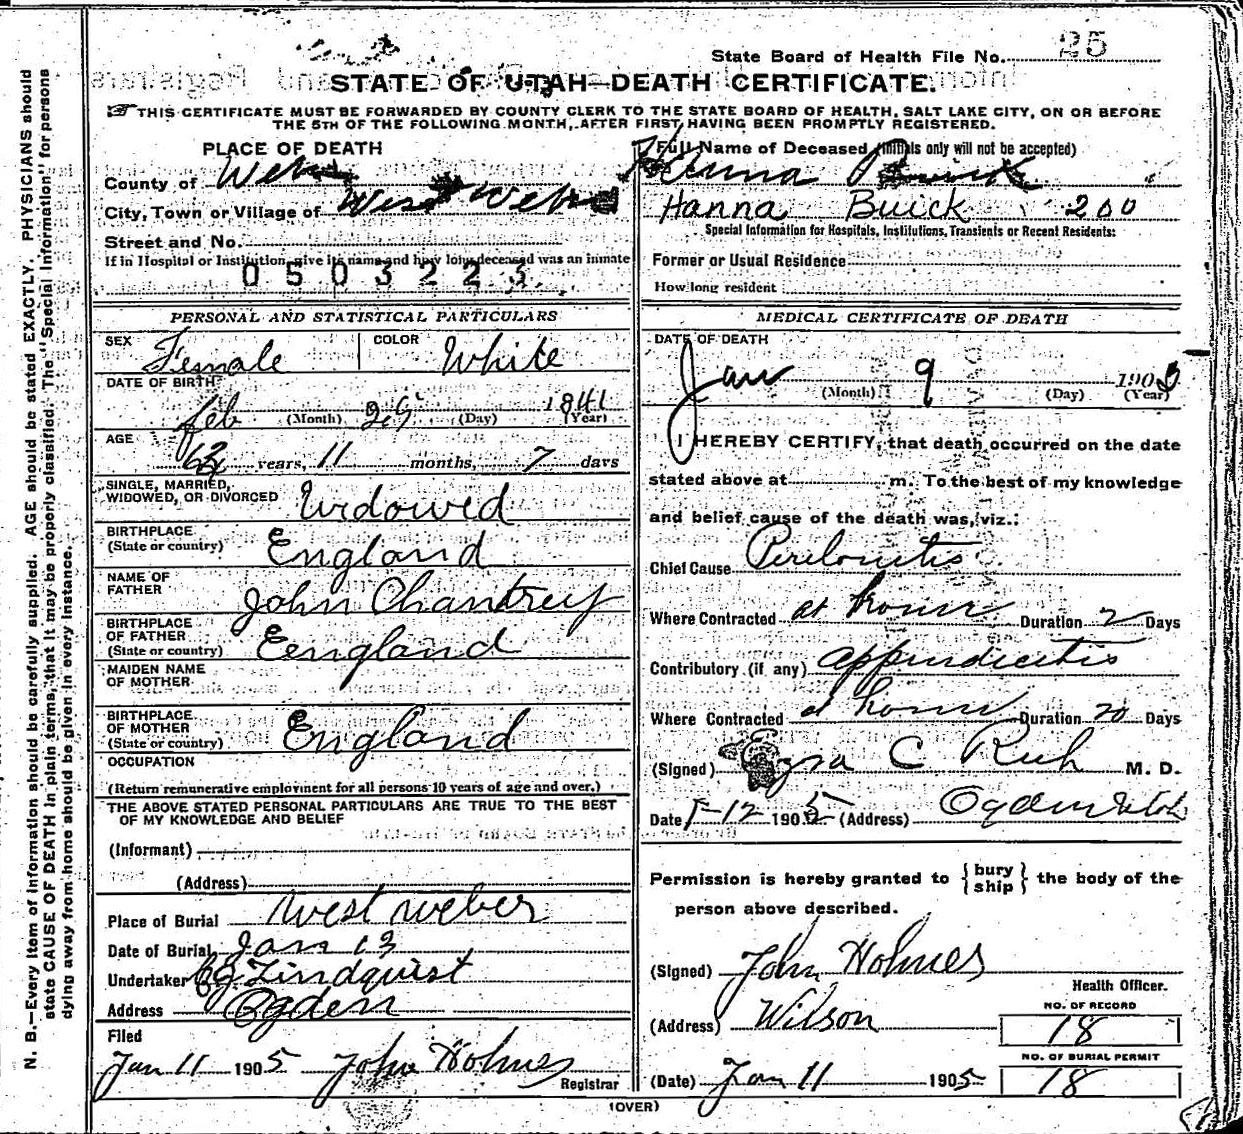 State Board of Health File No. 25
STATE OF UTAH—DEATH CERTIFICATE.
THIS CERTIFICATE MUST BE FORWARDED BY COUNTY CLERK TO THE STATE BOARD OF HEALTH, SALT LAKE CITY, ON OR BEFORE
THE 5TH OF THE FOLLOWING MONTH, AFTER FIRST HAVING BEEN PROMPTLY REGISTERED.
PLACE OF DEATH
County of Weber
City, Town or Village of West Weber
Street and No.
If in Hospital or Institution, give its name and how long deceased was an inmate
0503223
PERSONAL AND STATISTICAL PARTICULARS
SEX Female COLOR White
DATE OF BIRTH
Feb (Month) 29 (Day) 1841 (Year)
AGE
years, 11 months, 7 days
SINGLE, MARRIED,
WIDOWED, OR DIVORCED Widowed
BIRTHPLACE
(State or country) England
NAME OF
FATHER John Chantrey
BIRTHPLACE
OF FATHER
(State or country) Eengland
MAIDEN NAME
OF MOTHER
BIRTHPLACE
OF MOTHER
(State or country) England
OCCUPATION
(Return remunerative employment for all persons 10 years of age and over.)
THE ABOVE STATED PERSONAL PARTICULARS ARE TRUE TO THE BEST
OF MY KNOWLEDGE AND BELIEF
(Informant)
(Address)
Place of Burial West Weber
Date of Burial Jan 13
Undertaker Lindquist
Address Ogden
Filed
Jan 11 1905 John Holmes
Registrar
Full Name of Deceased (initials only will not be accepted)
Hanna Buick
Hanna Buick 200
Special Information for Hospitals, Institutions, Transients or Recent Residents:
Former or Usual Residence
How long resident
MEDICAL CERTIFICATE OF DEATH
DATE OF DEATH
Jan (Month) 9 (Day) 1905 (Year)
I HEREBY CERTIFY, that death occurred on the date
stated above at m. To the best of my knowledge
and belief cause of the death was, viz.:
Chief Cause Peritonitis
Where Contracted at home Duration 2 Days
Contributory (if any) appendicitis
Where Contracted at home Duration 20 Days
(Signed) Ezra C Rich M. D.
Date 1-12 1905 (Address) Ogden Utah
Permission is hereby granted to {bury
ship} the body of the
person above described.
(Signed) John Holmes
Health Officer.
(Address) Wilson
NO. OF RECORD
18
NO. OF BURIAL PERMIT
(Date) Jan 11 1905 18
(OVER)
N. B.—Every item of information should be carefully supplied. AGE should be stated EXACTLY. PHYSICIANS should
state CAUSE OF DEATH in plain terms, that it may be properly classified. The "Special Information" for persons
dying away from home should be given in every instance.